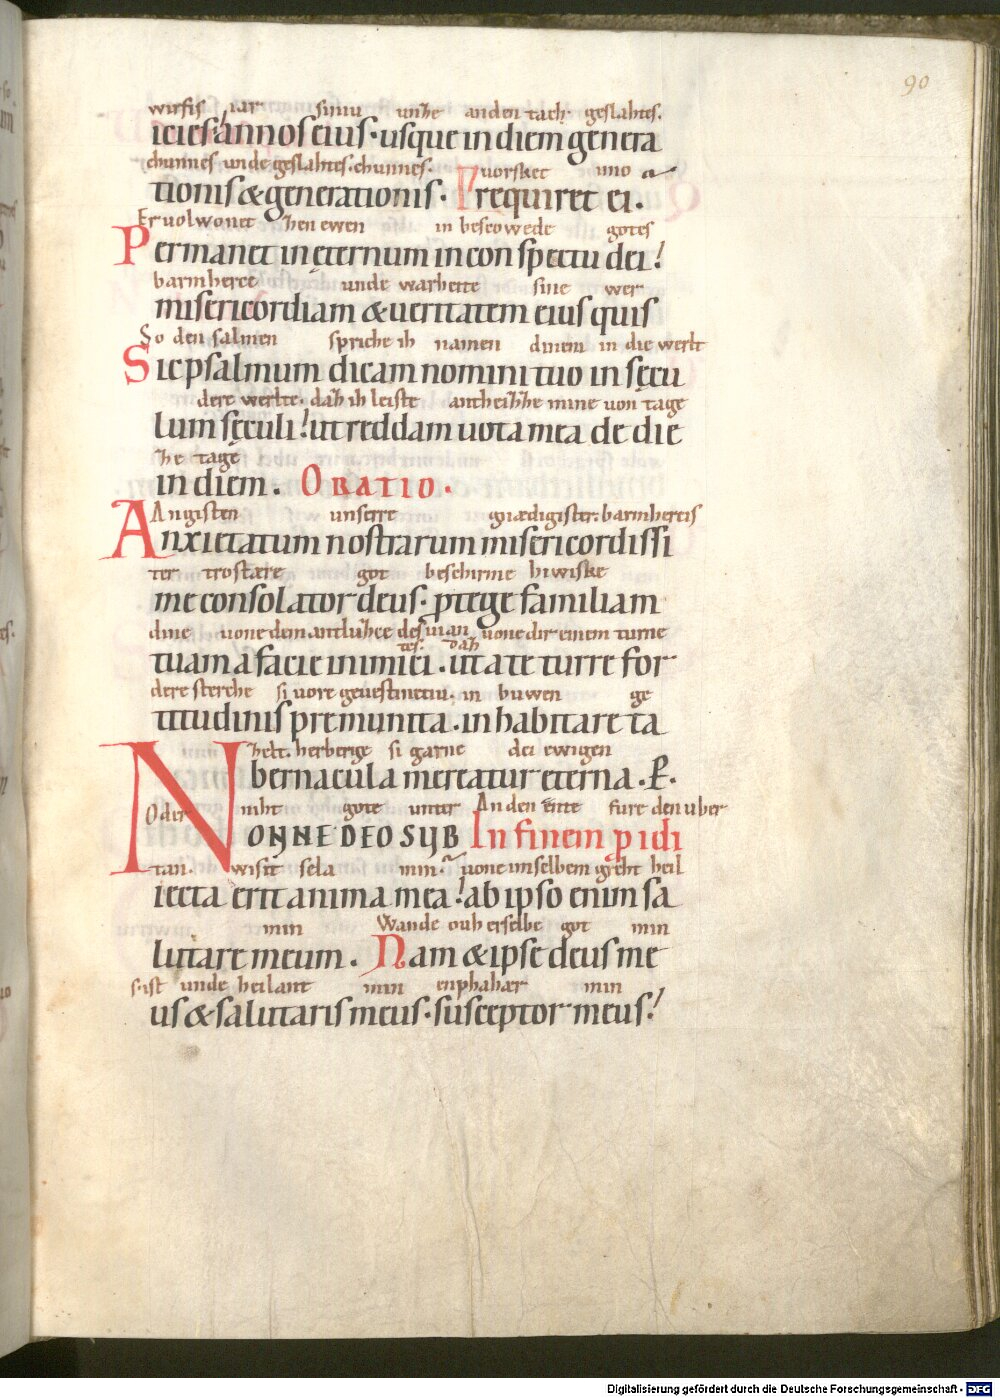 90
wirsis iar siniu unze anden tach geslahtes.
icies annos eius · usque in diem genera
chunnes unde geslahtes chunnes. vorsket imo
tionis & generationis · Prequiret ei.
Er volwonet zen ewen in bescowede gotes
Permanet in ęternum in conspectu dei!
barmherce unde warheite sine wer
misericordiam & ueritatem eius quis
So den salmen spriche ih namen dinem in die werlt
Sic psalmum dicam nomini tuo in sęcu
dere werlte. daz ih leiste antheizze mine von tage
lum sęculi! ut reddam uota mea de die
ze tage
in diem. ORATIO.
Angisten unserre gnædigister: barmhercis
Anxietatum nostrarum misericordissi
ter trostære got beschirme hiwiske
me consolator deus. ptege familiam
dine vone dem antluzce des vian vone dir einem turne
tes. daz
tuam a facie inimici. ut a te turre for
dere sterche si vore gevestinetiu. in buwen ge
titudinis premunita. inhabitare ta
zelt. herberige si garne dei ewigen
bernacula mereatur eterna. P.
Oder niht gote unter An den ente fure den uber
NONNE DEO SUB In finem p idi
tan. wisit sela min. vone imselbem gicht heil
iecta erit anima mea! ab ipso enim sa
min Wande ouh erselbe got min
lutare meum. Nam & ipse deus me
sist unde heilant min enphahar min
us & salutaris meus. susceptor meus!
Digitalisierung gefördert durch die Deutsche Forschungsgemeinschaft - DFG